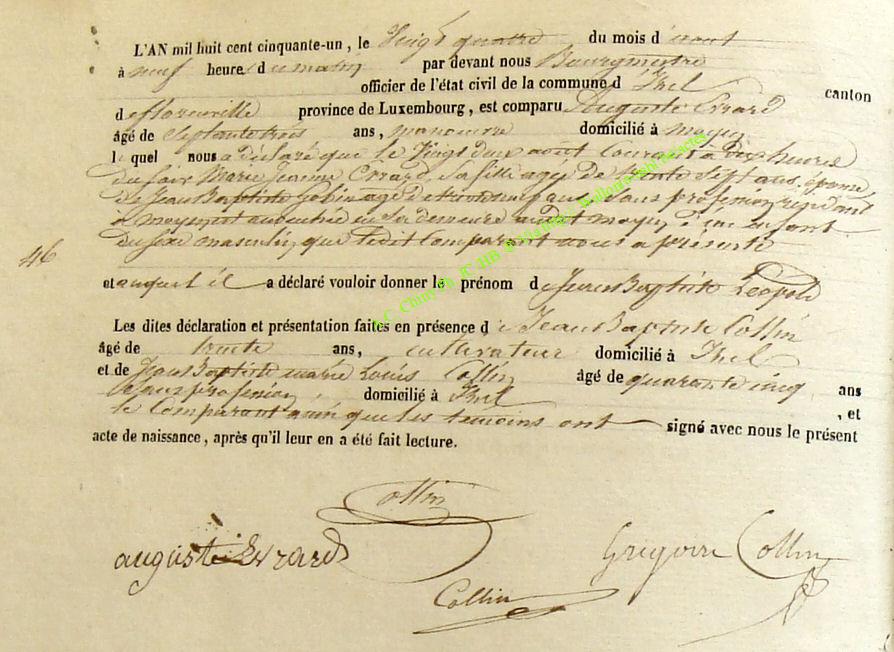 L'AN mil huit cent cinquante-un, le Vingt quatre du mois d'aout
à neuf heure du matin par devant nous Bourgmestre
officier de l'état civil de la commune d'Izel canton
de florenville province de Luxembourg, est comparu Auguste Errard
âgé de Septante trois ans, manoeuvre domicilié à moyen
lequel nous a déclaré que le Vingt deux aout Courant à dix heures
du soir Marie Jeanne Errard, sa fille agée de trente Sept ans, épouse
de Jean Baptiste Gobin agé de ans, sans profession residant
à moyen est accouchée en sa demeure audit moyen d'un enfant
du sexe masculin, que ledit Comparant nous a présenté
46
et auquel il a déclaré vouloir donner le prénom de Jean Baptiste Léopold
Les dites déclaration et présentation faites en présence de Jean Baptiste Collin
âgé de trente ans, cultivateur domicilié à Izel
et de Jean Baptiste marie Louis Collin âgé de quarante cinq ans
sans profession, domicilié à Izel, et
le Comparant ainsi que les temoins ont signé avec nous le présent
acte de naissance, après qu'il leur en a été fait lecture.
Collin
auguste Errard
Grégoire Collin
Collin